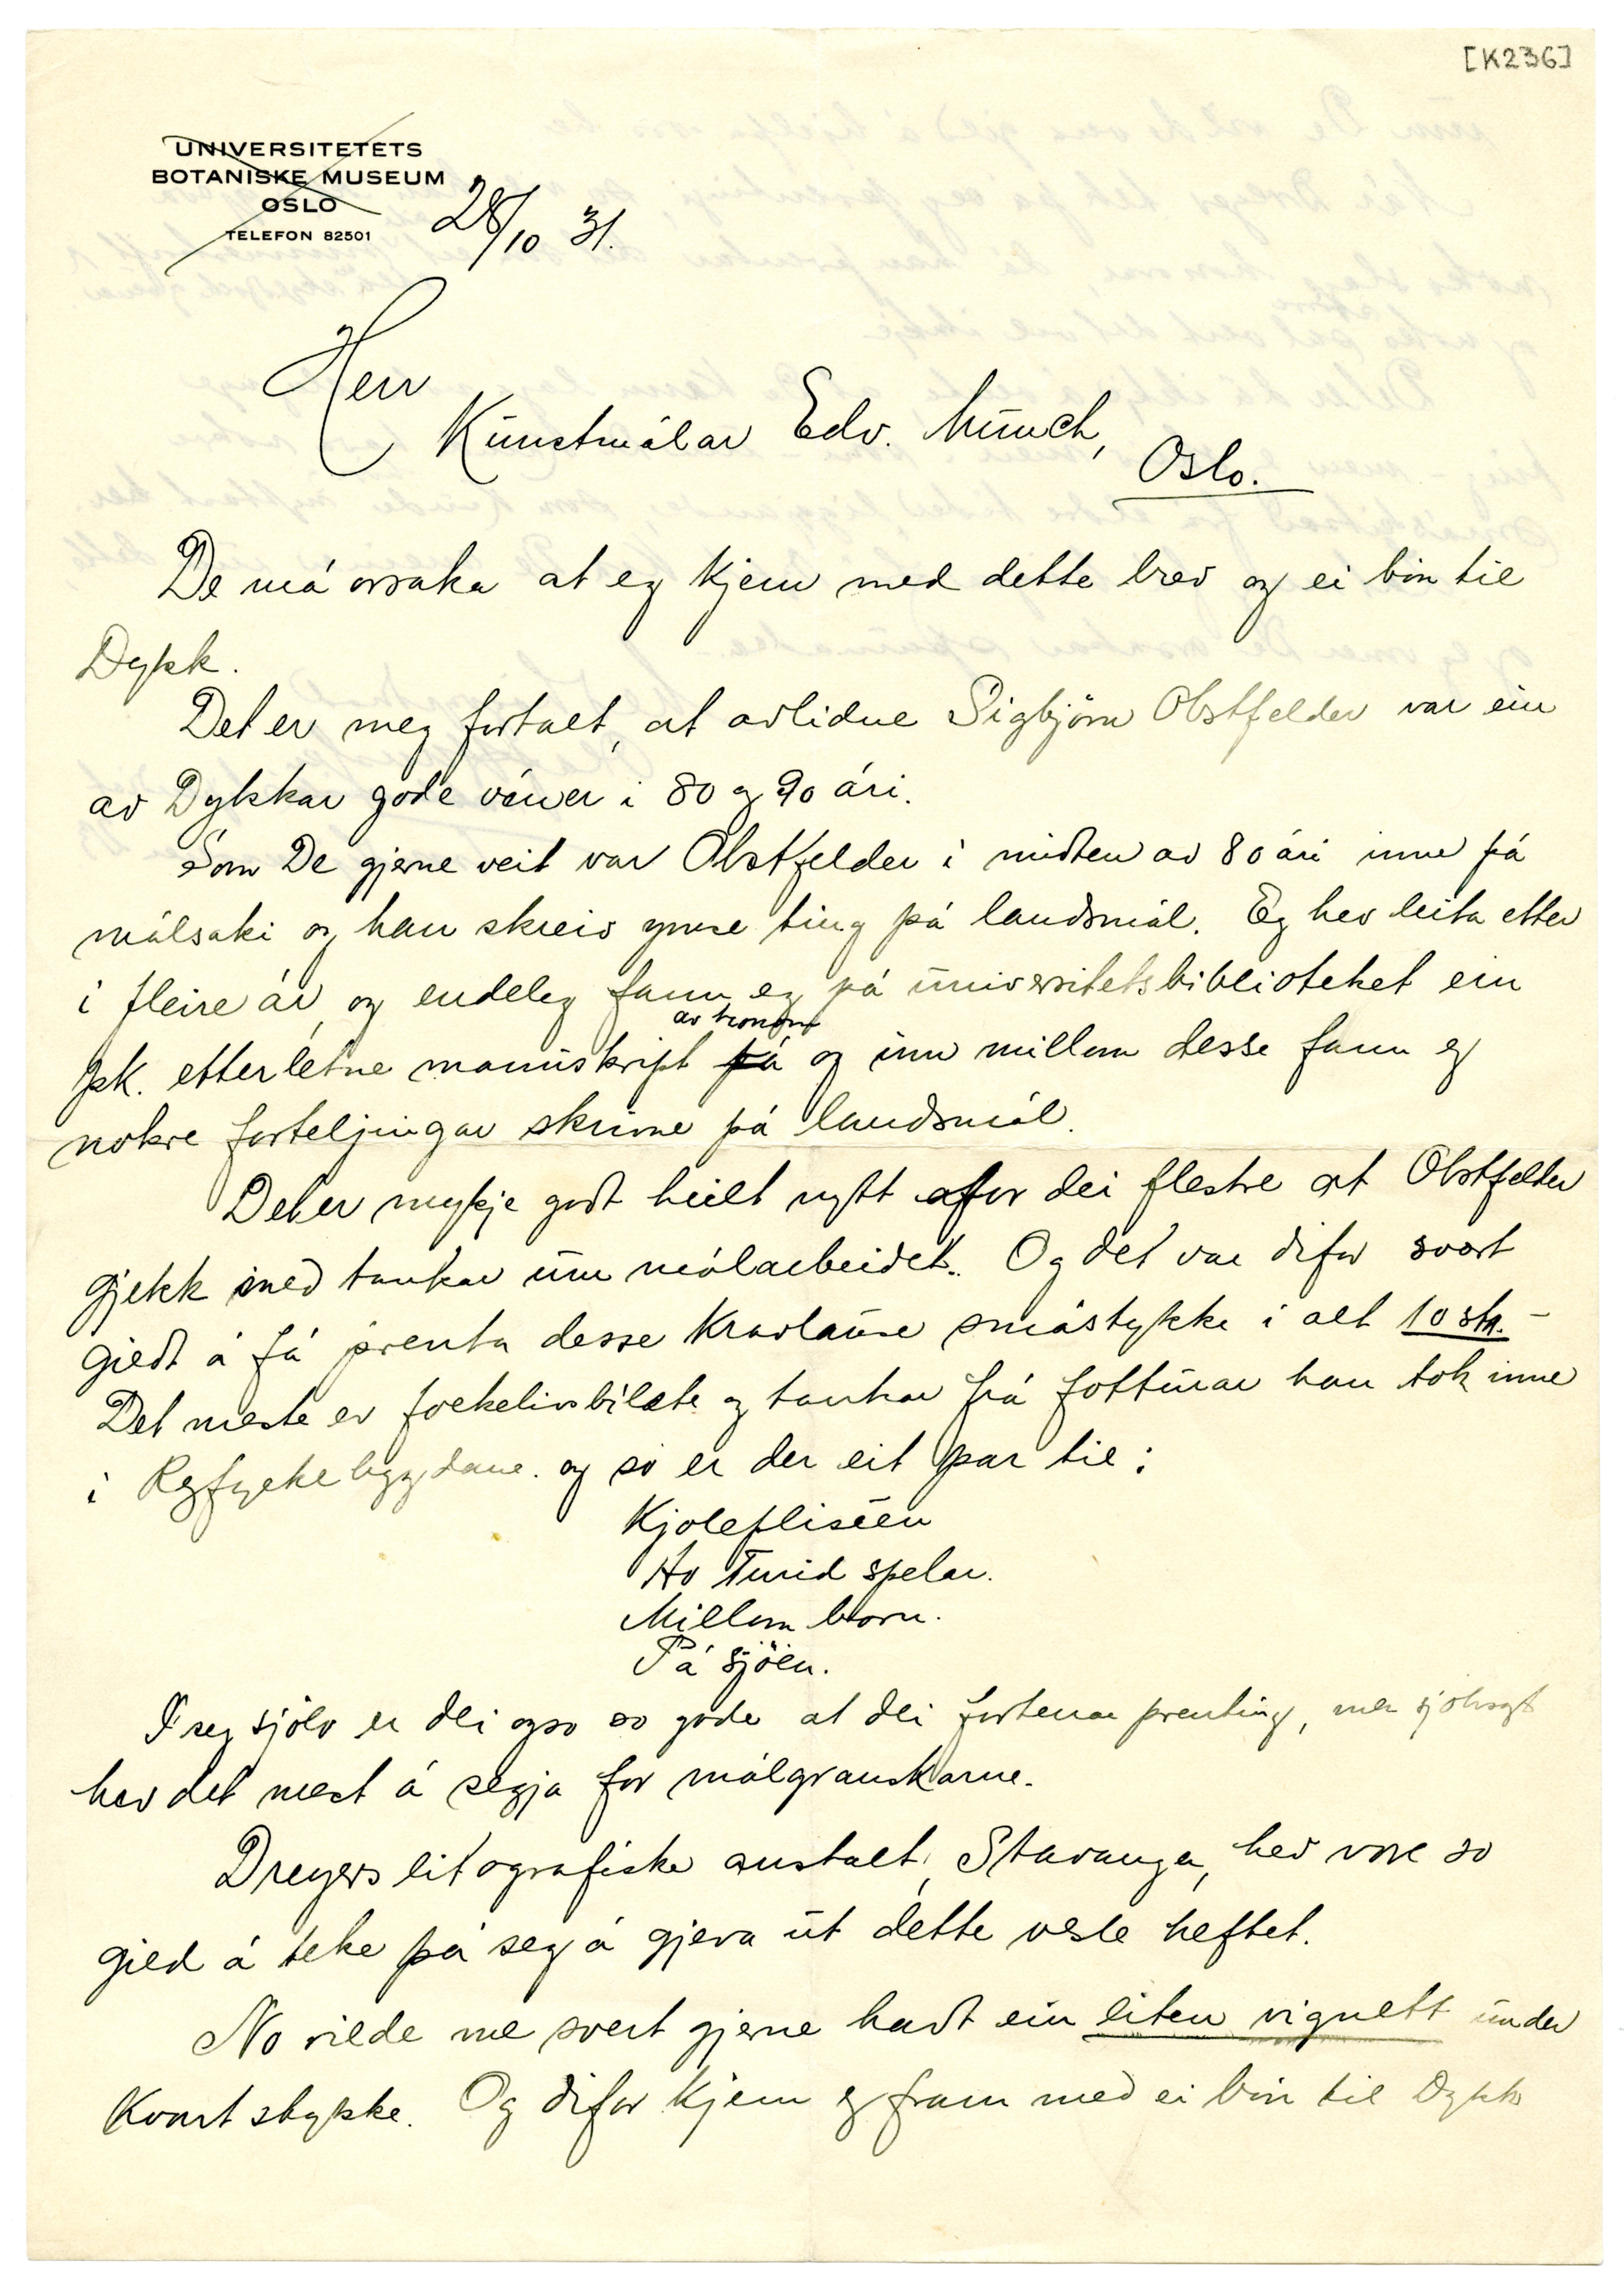 [K236]
UNIVERSITETETS
BOTANISKE MUSEUM
OSLO
TELEFON 82501
28/10 31.
Herr
Kunstmålar Edv. Munch,
Oslo.
De må orsaka at eg kjem med dette brev og ei bön til
Dykk.
Det er meg fortalt, at avlidne Sigbjörn Obstfelder var ein
av Dykkar gode våner i 80 og 90 åri.
Som De gjerne veit var Obstfelder i midten av 80 åri inne på
målsaki og han skreiv ymse ting på landsmål. Eg hev leita etter
i fleire år og endeleg fann eg på universitetsbiblioteket ein
pk. etterletne manuskript på av honom og inn millom desse fann eg
nokre forteljingar skrivne på landsmål.
Det er mykje godt heilt nytt for dei fleste at Obstfelder
gjekk med tankar um målarbeidet. Og det var difor svært
gildt å få prenta desse kravlause småstykke i alt 10 stk. –
Det meste er folkelivsbilæte og tankar frå fotturar han tok inne
i Ryfylkebygdane. og so er der eit par til:
Kjolefliséen
Ho Turid spelar.
Millom born.
På sjöen.
I seg sjölv er dei ogso so gode at dei fortenar prenting, men sjölvsagt
hev det mest å segja for målgranskarne.
Dreyers litografiske anstalt, Stavanger, hev vore so
gild å teke på seg å gjeva ut dette vesle heftet.
No vilde me svert gjerne havt ein liten vignett under
kvart stykke. Og difor kjem eg fram med ei bön til Dykk